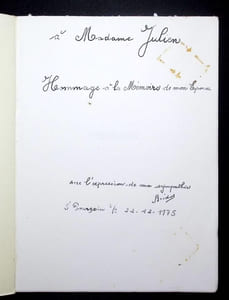 à Madame Julien
Hommage à la Mémoire de mon Epoux
avec l'expression de ma sympathie
22-12-1975